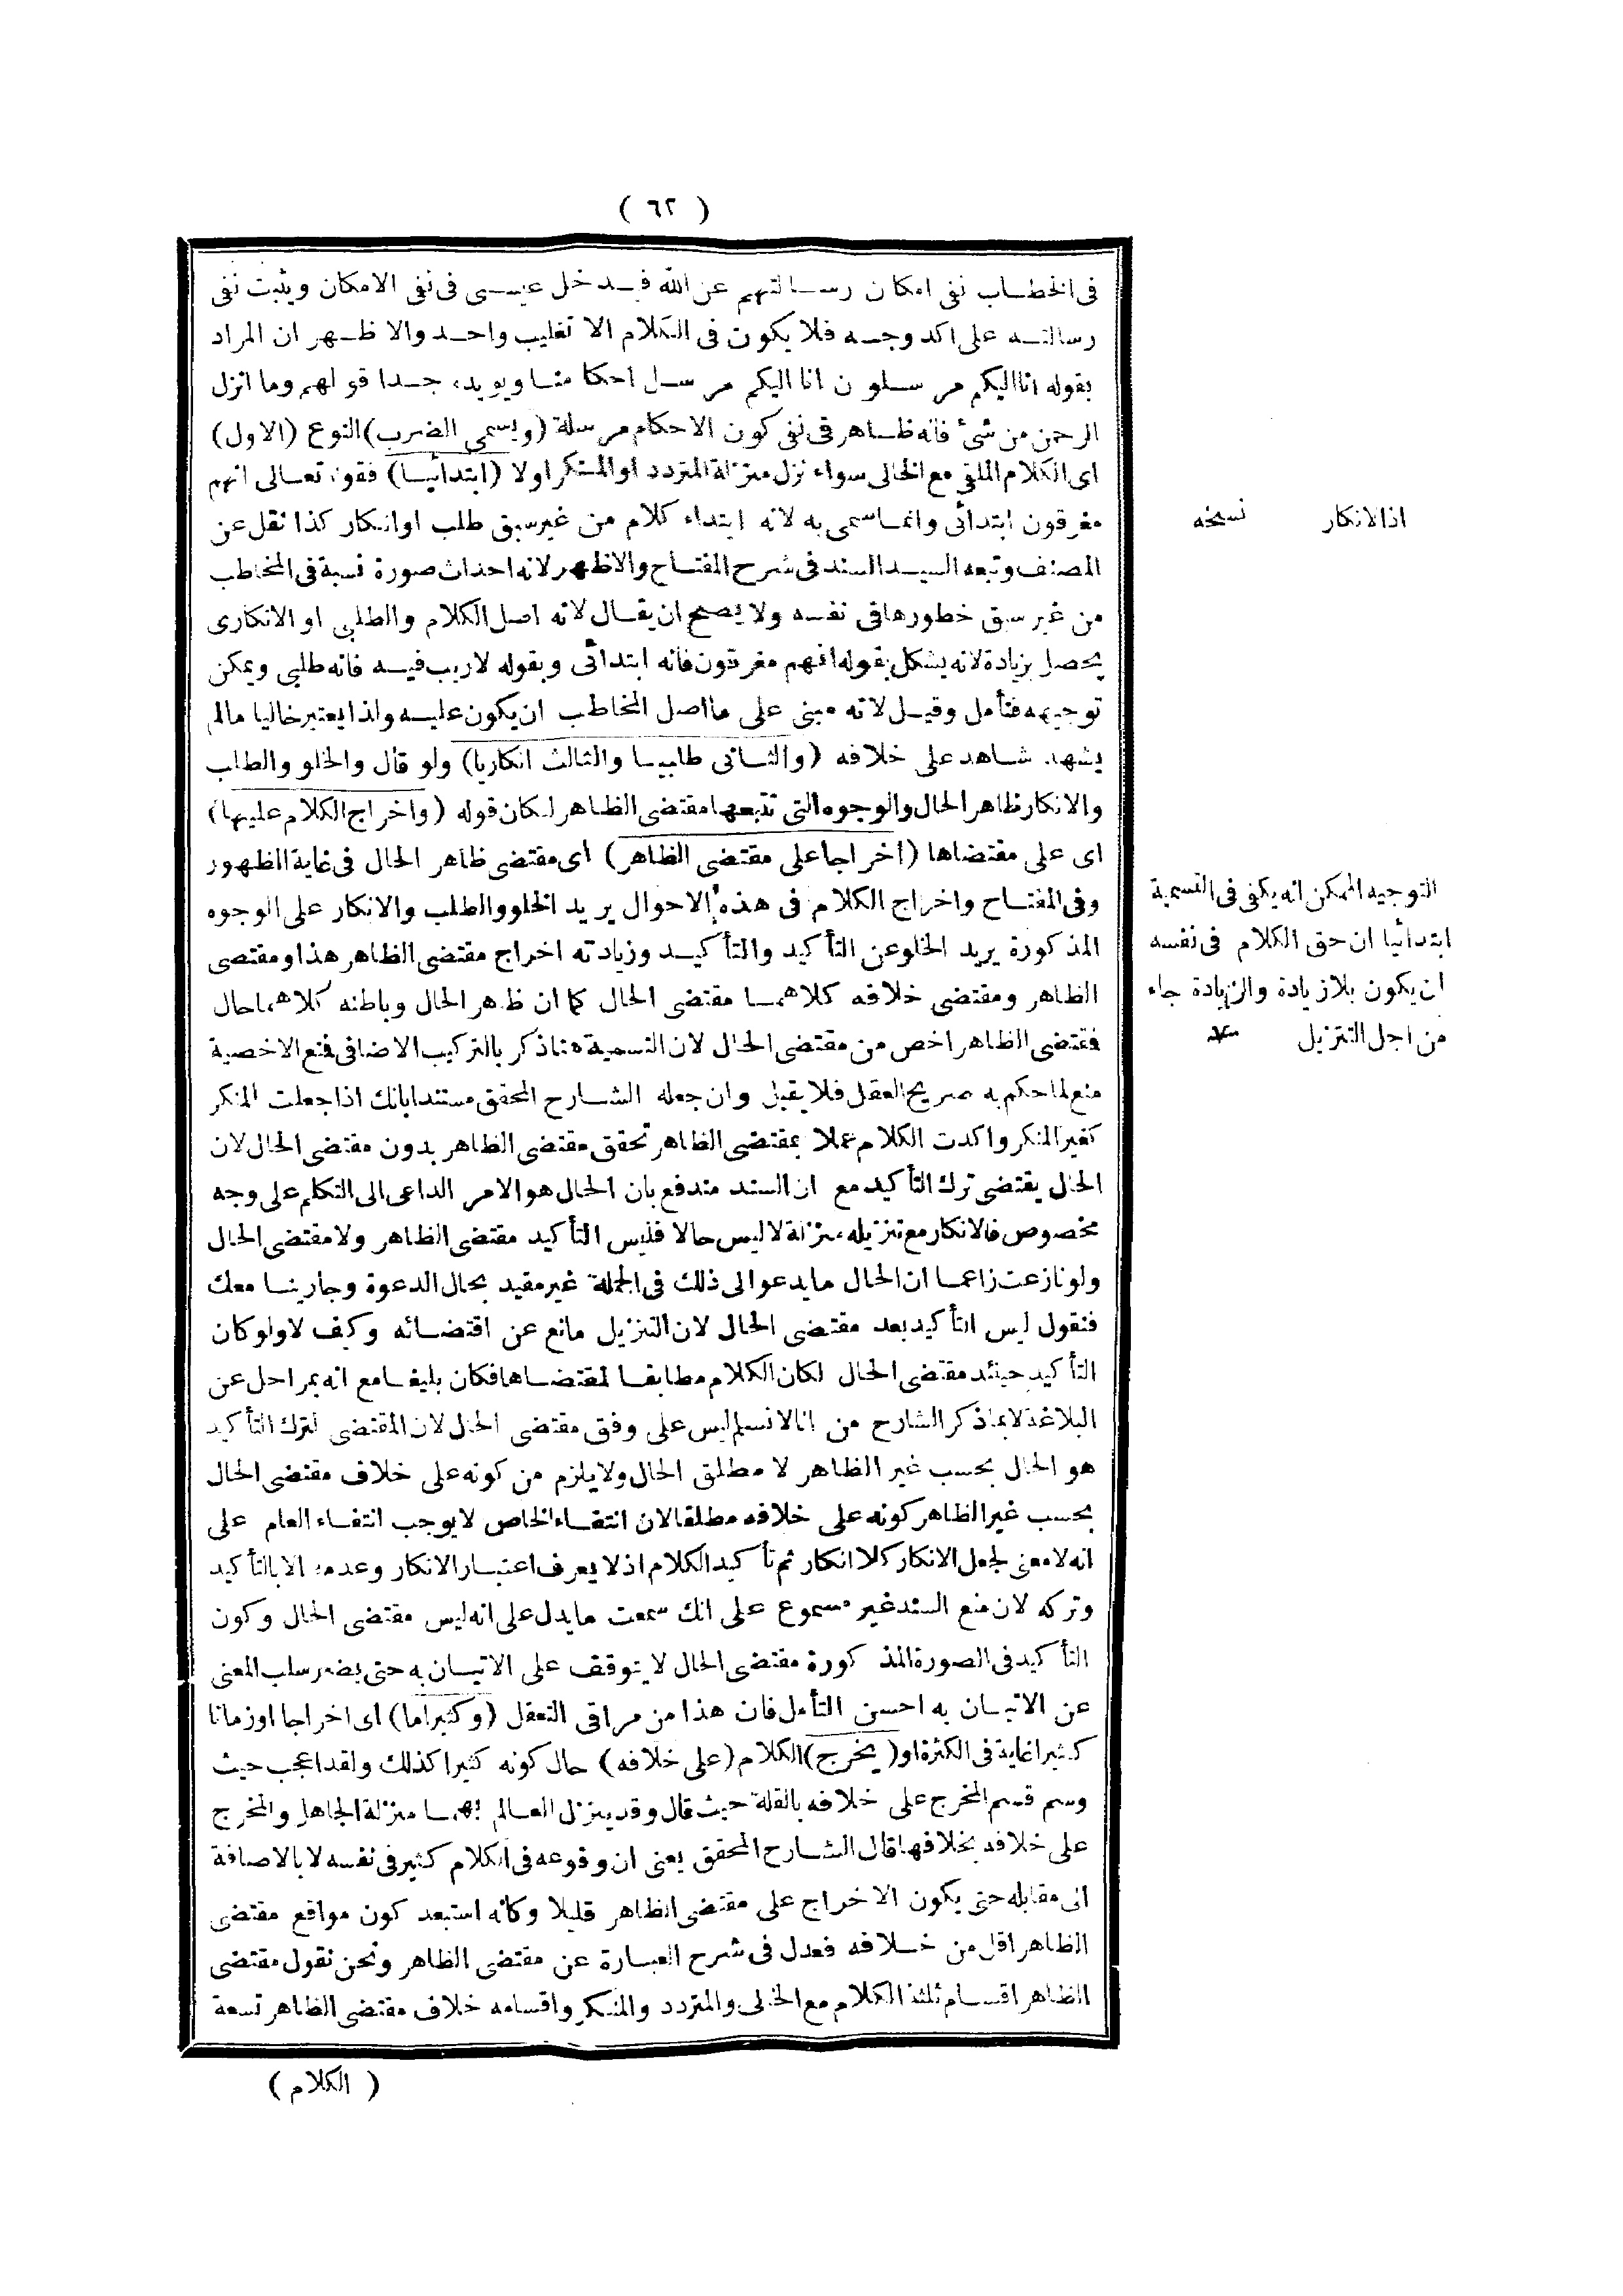 ( ٦٢ )
فى الخطاب نفى امكان رسالتهم عن الله فيدخل عيسى فى نفى الامكان ويثبت نفى
رسالته على اكد وجه فلا يكون فى الكلام الا تغليب واحد والا ظهر ان المراد
بقوله انا اليكم مرسلون انا اليكم مرسل احكا منا ويويده جدا قولهم وما انزل
الرحمن من شئ فانه ظاهر فى نفى كون الاحكام مرسلة (ويسمى الضرب) النوع (الاول)
اى الكلام الملقى مع الخالى سواء نزل منزلة المتردد او المنكر اولا (ابتدائيا) فقوله تعالى انهم
مغرقون ابتدائى وانما سمى به لانه ابتداء كلام من غير سبق طلب او انكار كذا نقل عن
المصنف وتبعه السيد السند فى شرح المفتاح والاظهر لانه احداث صورة نسبة فى المخاطب
من غير سبق خطورها فى نفسه ولا يصح ان يقال لانه اصل الكلام والطلبى او الانكارى
يحصل بزيادة لانه يشكل بقوله انهم مغرقون فانه ابتدائى وبقوله لاريب فيه فانه طلبى ويمكن
توجيهه فتأمل وقيل لانه مبنى على ما اصل المخاطب ان يكون عليه ولذا يعتبر خاليا مالم
يشهد شاهد على خلافه (والثانى طلبيا والثالث انكاريا) ولو قال والخلو والطلب
والانكار ظاهر الحال والوجوه التى تتبعها مقتضى الظاهر لكان قوله (واخراج الكلام عليها)
اى على مقتضاها (اخراجا على مقتضى الظاهر) اى مقتضى ظاهر الحال فى غاية الظهور
وفى المفتاح واخراج الكلام فى هذه الاحوال يريد الخلو والطلب والانكار على الوجوه
المذكورة يريد الخلو عن التأكيد والتأكيد وزيادته اخراج مقتضى الظاهر هذا ومقتضى
الظاهر ومقتضى خلافه كلاهما مقتضى الحال كما ان ظاهر الحال وباطنه كلاهما حال
فمقتضى الظاهر اخص من مقتضى الحال لان التسمية هنا ذكر بالتركيب الاضافى فمنع الاخصية
منع لما حكم به صريح العقل فلا يقبل وان جعله الشارح المحقق مستندا بانك اذا جعلت المنكر
كغير المنكر واكدت الكلام عملا بمقتضى الظاهر تحقق مقتضى الظاهر بدون مقتضى الحال لان
الحال يقتضى ترك التأكيد مع ان السند مندفع بان الحال هو الامر الداعى الى التكلم على وجه
مخصوص فالانكار مع تنزيله منزلة لا ليس حالا فليس التأكيد مقتضى الظاهر ولا مقتضى الحال
ولو نازعت زاعما ان الحال ما يدعو الى ذلك فى الجملة غير مقيد بحال الدعوة وجارينا معك
فنقول ليس التأكيد بعد مقتضى الحال لان التنزيل مانع عن اقتضائه وكيف لا ولو كان
التأكيد حينئذ مقتضى الحال لكان الكلام مطابقا لمقتضاها فكان بليغا مع انه بمراحل عن
البلاغة لا بما ذكر الشارح من انا لا نسلم ليس على وفق مقتضى الحال لان المقتضى لترك التأكيد
هو الحال بحسب غير الظاهر لا مطلق الحال ولا يلزم من كونه على خلاف مقتضى الحال
بحسب غير الظاهر كونه على خلافه مطلقا لان انتفاء الخاص لا يوجب انتفاء العام على
انه لا معنى لجعل الانكار كلا انكار ثم تأكيد الكلام اذ لا يعرف اعتبار الانكار وعدمه الا بالتأكيد
وتركه لان منع السند غير مسموع على انك سمعت ما يدل على انه ليس مقتضى الحال وكون
التأكيد فى الصورة المذكورة مقتضى الحال لا يتوقف على الاتيان به حتى يضر سلب المعنى
عن الاتيان به احسن التأمل فان هذا من مراقى التعقل (وكثيرا ما) اى اخراجا او زمانا
كثيرا غاية فى الكثرة او (يخرج) الكلام (على خلافه) حال كونه كثيرا كذلك ولقد اعجب حيث
وسم قسم المخرج على خلافه بالقلة حيث قال وقد ينزل العالم بهما منزلة الجاهل والمخرج
على خلافه بخلافها قال الشارح المحقق يعنى ان وقوعه فى الكلام كثير فى نفسه لا بالاضافة
الى مقابله حتى يكون الاخراج على مقتضى الظاهر قليلا وكانه استبعد كون مواقع مقتضى
الظاهر اقل من خلافه فعدل فى شرح العبارة عن مقتضى الظاهر ونحن نقول مقتضى
الظاهر اقسام ثلثة الكلام مع الخالى والمتردد والمنكر واقسامه خلاف مقتضى الظاهر تسعة
( الكلام )
اذالانكار نسخه
التوجيه الممكن انه يكفى فى التسمية
ابتدائيا ان حق الكلام فى نفسه
ان يكون بلا زيادة والزيادة جاء
من اجل التنزيل